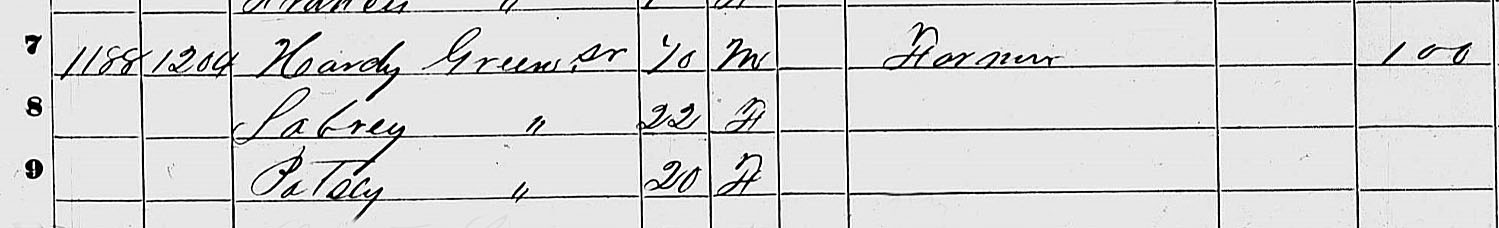 7 1188 1204 Hardy Green, Sr 70 M Farmer 100
8 Sabrey " 22 F
9 Patsey " 20 F